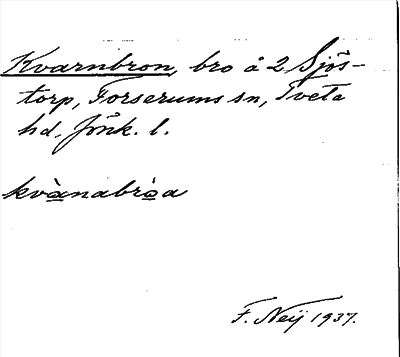 Kvarnbron, bro å 2 Sjös-
torp, Forserums sn, Tveta
hd, Jönk. l.
kvànabròa
F. Neij 1937.